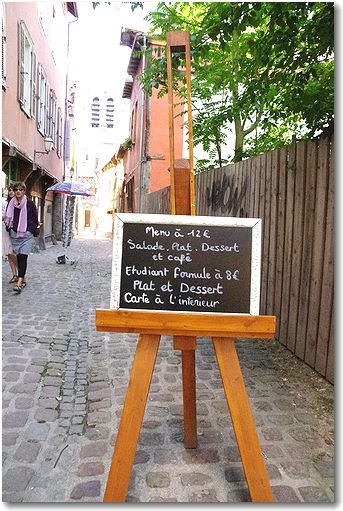 Menu à 12€
Salade, Plat, Dessert
et café
Etudiant formule à 8€
Plat et Dessert
Carte à l'interieur